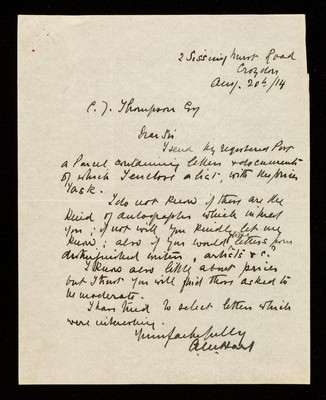 2 Sissinghurst Road
Croydon
Aug. 20th/14
C. J. Thompson Esq
Dear Sir
I send by registered Post
a Parcel containing letters & documents
of which I enclose a list, with the prices
I ask.
I do not know if these are the
kind of autographs which interest
you; if not will you kindly let me
know; also if you would letters from
distinguished writers, artists & c?
I know also little about prices
but I trust you will find those asked to
be moderate.
I have tried to select letters which
were interesting.
Yours faithfully